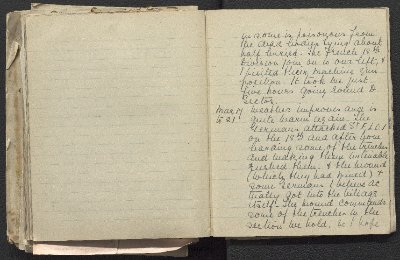 in some is poisonous from
the dead bodies lying about
half buried. The French 18th
Division join on is our left, &
I visited their machine gun
position. It took us just
five hours going round D
sector.
Mar 17 weather improves and is
to 21st quite warm again. The
Germans attacked St ELOI
on the 18th and after some
the trenches
and making them untenable
rushed them, & the mound
(which they had mined) &
some Germans I believe ac
tually got into the village
itself. The mound commands
some of the trenches in the
section we hold, so I hope